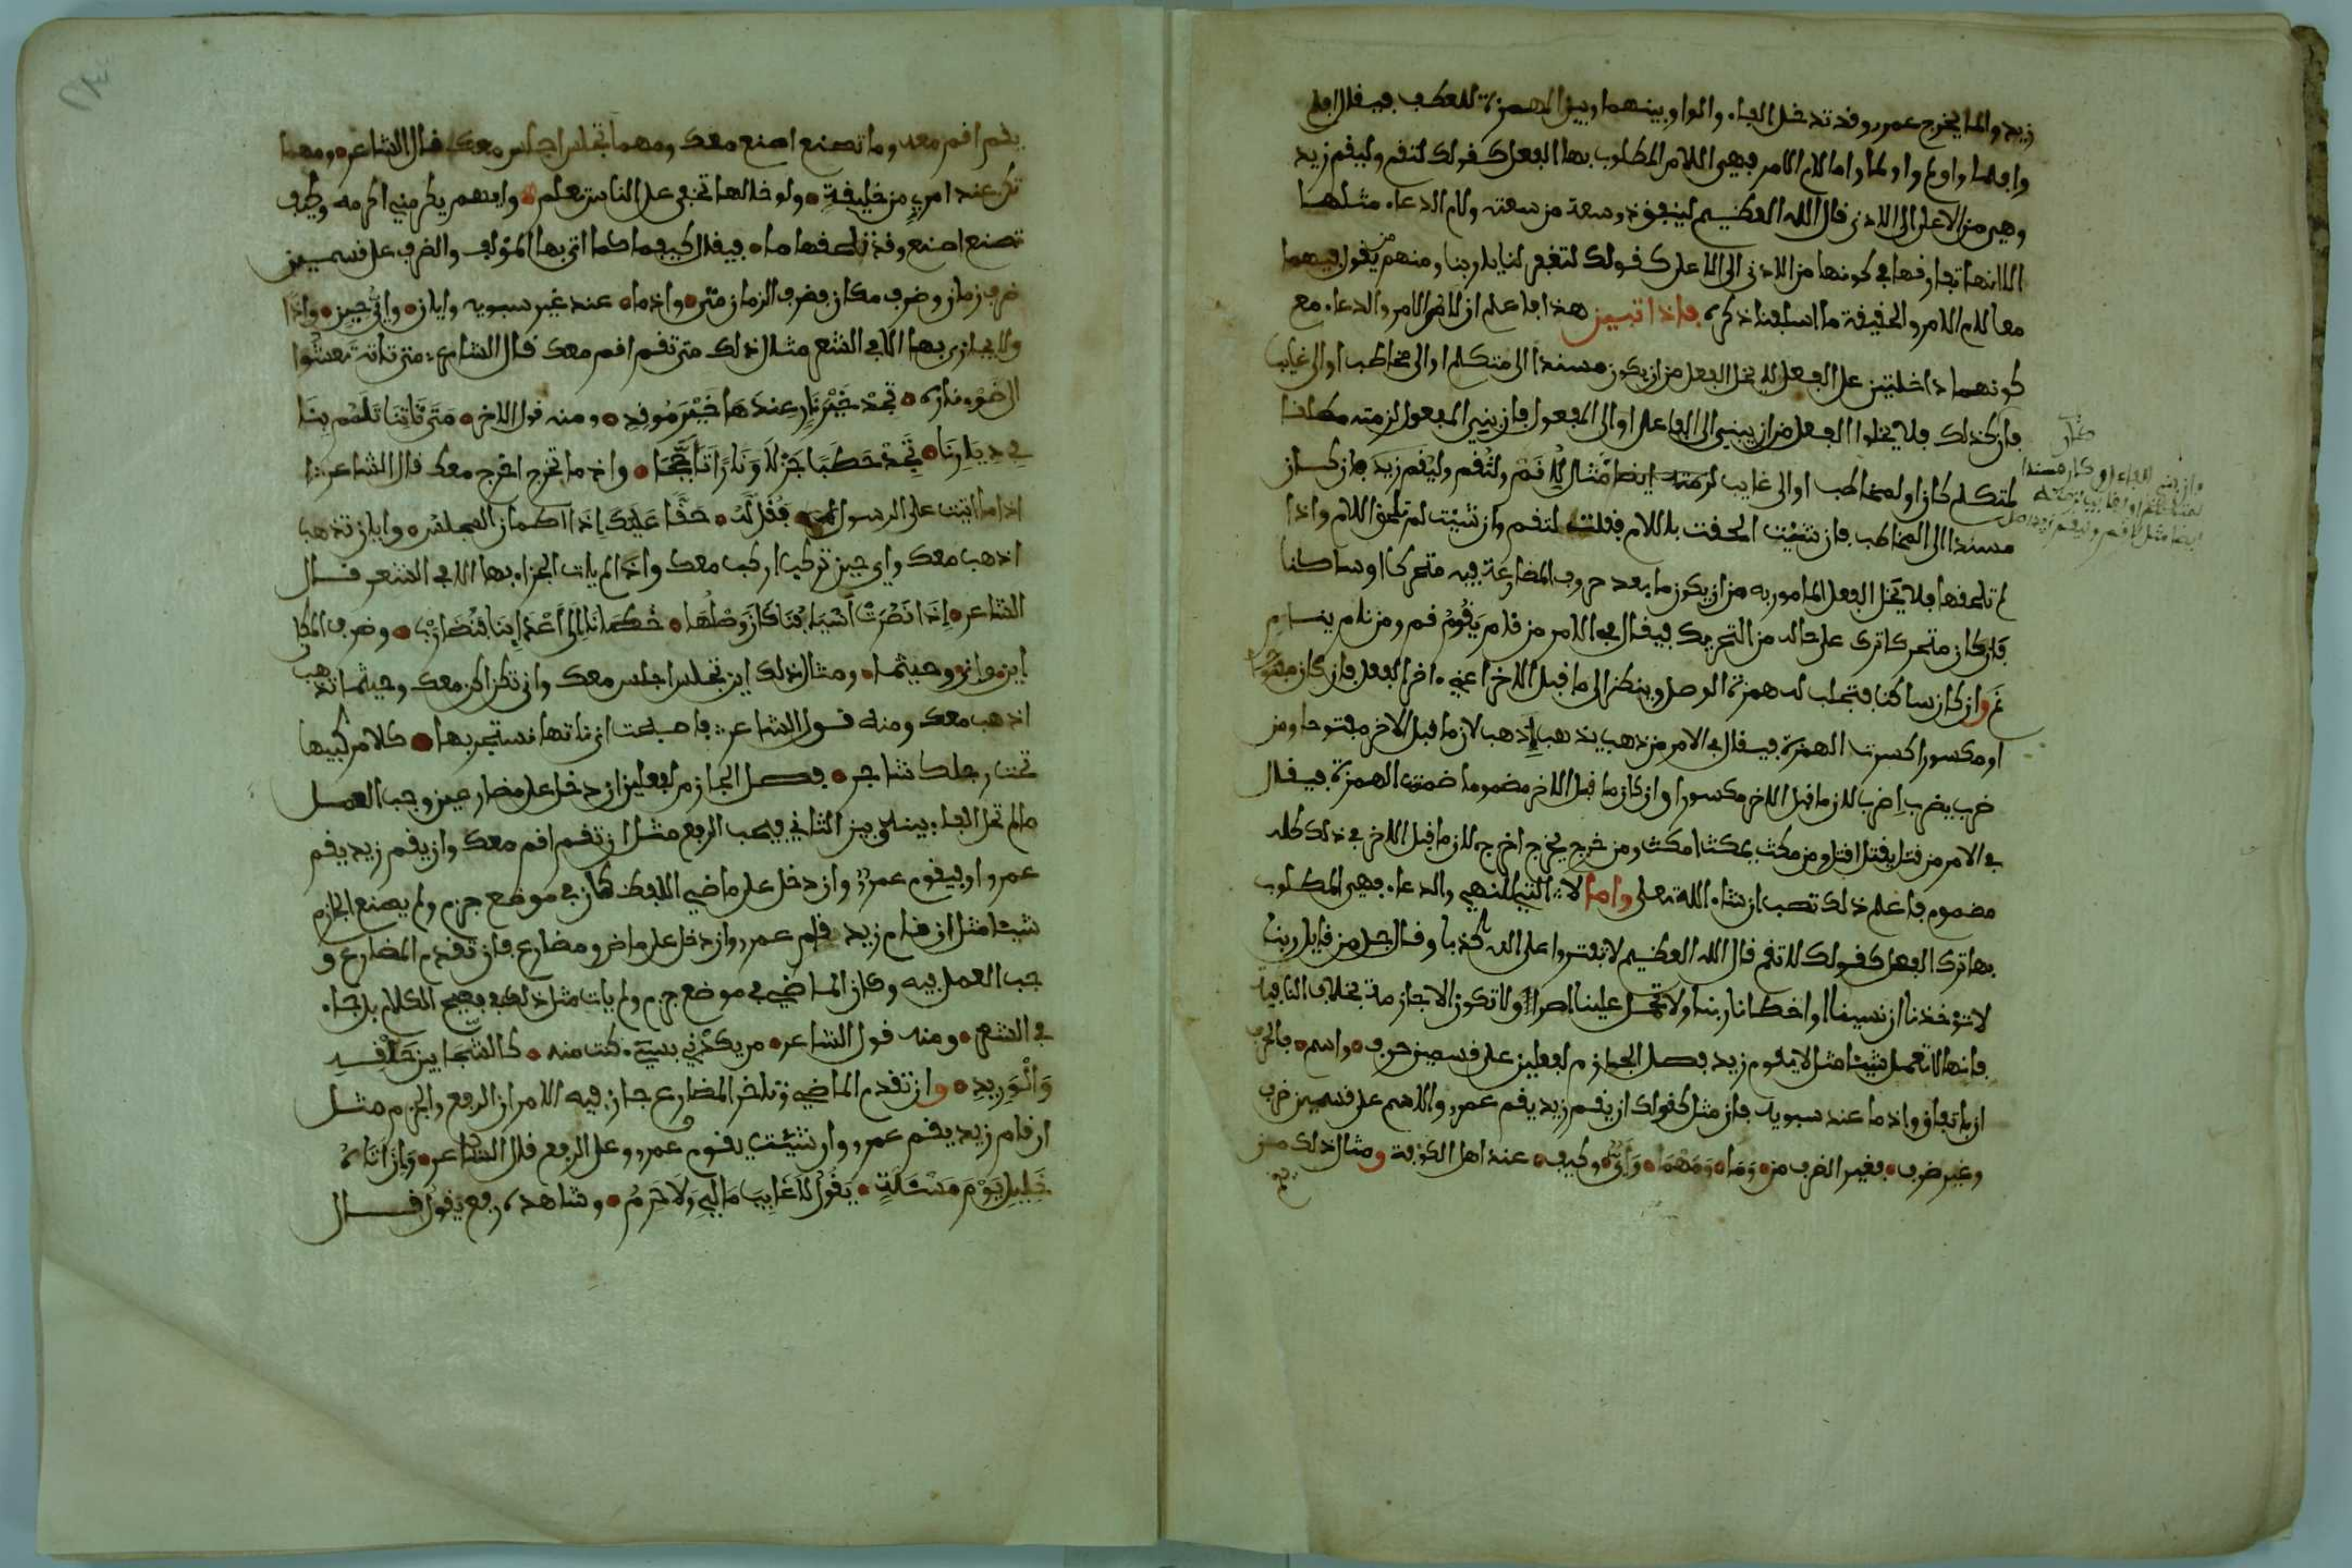 زيد والما يخرج عمرو وقد تدخل الفاء والواو بينهما وبين الهمزة للعطف فيقال افلم
وافلما واولم واولما واما لام الامر فهي اللام المطلوب بها الفعل كقولك لتقم وليقم زيد
وهي من الاعلى الى الادنى قال الله العظيم لينفق ذو سعة من سعته ولام الدعاء مثلها
الا انها تفارقها في كونها من الادنى الى الاعلى كقولك لتغفر لنا يا ربنا ومنهم من يقول فيهما
معا لام الامر والحقيقة ما اسلفنا ذكره فاذا تبين هذا فاعلم ان لام الامر والدعاء مع
كونهما داخلتين على الفعل لا يخل الفعل من ان يكون مسندا الى متكلم او الى مخاطب او الى غايب
فان كان كذلك فلا يخلوا الفعل من ان يبنى الى الفاعل او الى المفعول فان بني الى المفعول لزمته مطلقا
لمتكلم كان او لمخاطب او الى غايب لزمته ايضا مثال لاقم ولتقم وليقم زيد فان كان
مسندا الى المخاطب فان شئت الحقت به اللام فقلت لتقم وان شئت لم تلحق اللام واذا
لم تلحقها فلا يخل الفعل المامور به من ان يكون ما بعد حروف المضارعة فيه متحركا او ساكنا
فان كان متحركا ترى على حاله من التحريك فيقال في الامر من قام يقوم قم ومن نام ينام
نم وان كان ساكنا فتجلب له همزة الوصل وينظر الى ما قبل الاخر اعني اخر الفعل فان كان مفتوحا
او مكسورا كسرت الهمزة فيقال في الامر من ذهب يذهب اذهب لان ما قبل الاخر مفتوحا ومن
ضرب يضرب اضرب لان ما قبل الاخر مكسورا وان كان ما قبل الاخر مضموما ضمت الهمزة فيقال
في الامر من قتل يقتل اقتل ومن مكث يمكث امكث ومن خرج يخرج اخرج لان ما قبل الاخر في ذلك كله
مضموم فاعلم ذلك تصب ان شاء الله تعلى واما لا التي للنهي والدعاء فهي المطلوب
بها ترك الفعل كقولك لا تقم قال الله العظيم لا تفتروا على الله كذبا وقال جل من قايل ربنا
لا تؤخذنا ان نسينا او اخطانا ربنا ولا تحمل علينا اصرا ولا تكون لا جازمة بخلاف النافية
فانها لا تعمل شيئا مثل لا يقوم زيد فصل الجوازم لفعلين على قسمين حرف واسم فالحرف
ان باتفاق واذ ما عند سبويه فان مثل كقولك ان يقم زيد يقم عمرو والاسم على قسمين ضرف
وغير ضرف فغير الضرف من وما ومهما واي وكيف عند اهل الكوفة ومثال ذلك من
يقم
وان بني للفاعل وكان مسندا
ايضا مثل لاقم وليقم زيد
يقم اقم معه وما تصنع اصنع معك ومهما تجلس اجلس معك قال الشاعر ومهما
تكن عند امرء من خليفة ولو خالها تخفى على الناس تعلم وايهم يكرمني اكرمه وكيف
تصنع اصنع وقد تلحقها ما فيقال كيفما كما اتى بها المؤلف والضرف على قسمين
ضرف زمان وضرف مكان فضرف الزمان متى واذ ما عند غير سبويه وايان واي حين واذا
ولا يجازى بها الا في الشعر مثال ذلك متى تقم اقم معك قال الشاعر متى تاته تعشوا
الى ضوء ناره تجد خير نار عندها خير موقد ومنه قول الاخر متى تاتنا تلمم بنا
في ديارنا تجد حطبا جزلا ونارا تاججا واذ ما تخرج اخرج معك قال الشاعر
اذ ما اتيت على الرسول فقل له حقا عليك اذا اطمان المجلس وايان تذهب
اذهب معك واي حين تركب اركب معك واذا لم يات الجزاء بها الا في الشعر قال
الشاعر اذا نصرت اسيافنا كان وصلها خطانا الى اعداينا فنضارب وضرف المكان
اين واني وحيثما ومثال ذلك اين تجلس اجلس معك واني تكن اكن معك وحيثما تذهب
اذهب معك ومنه قول الشاعر فاصبحت اني تاتها تستجر بها كلا مركبيها
تحت رجلك شاجر فصل الجازم لفعلين ان دخل على مضارعين وجب العمل
ما لم تحل الفاء بينه وبين الثاني فيجب الرفع مثل ان تقم اقم معك وان يقم زيد يقم
عمرو او فيقوم عمرو وان دخل على ماضي اللفظ كان في موضع جزم ولم يصنع الجازم
شيئا مثل ان قام زيد قام عمرو وان دخل على ماض ومضارع فان تقدم المضارع و
جب العمل فيه وكان الماضي في موضع جزم ولم يات مثل ذلك في فصيح الكلام بل جاء
في الشعر ومنه قول الشاعر من يكدني بسيء كنت منه كالشجا بين حلقه
والوريد وان تقدم الماضي وتاخر المضارع جاز فيه الامران الرفع والجزم مثل
ان قام زيد يقم عمرو وان شئت يقوم عمرو وعلى الرفع قال الشاعر وان اتاه
خليل يوم مسئلة يقول لا غايب مالي ولا حرم وشاهده رفع يقول قال